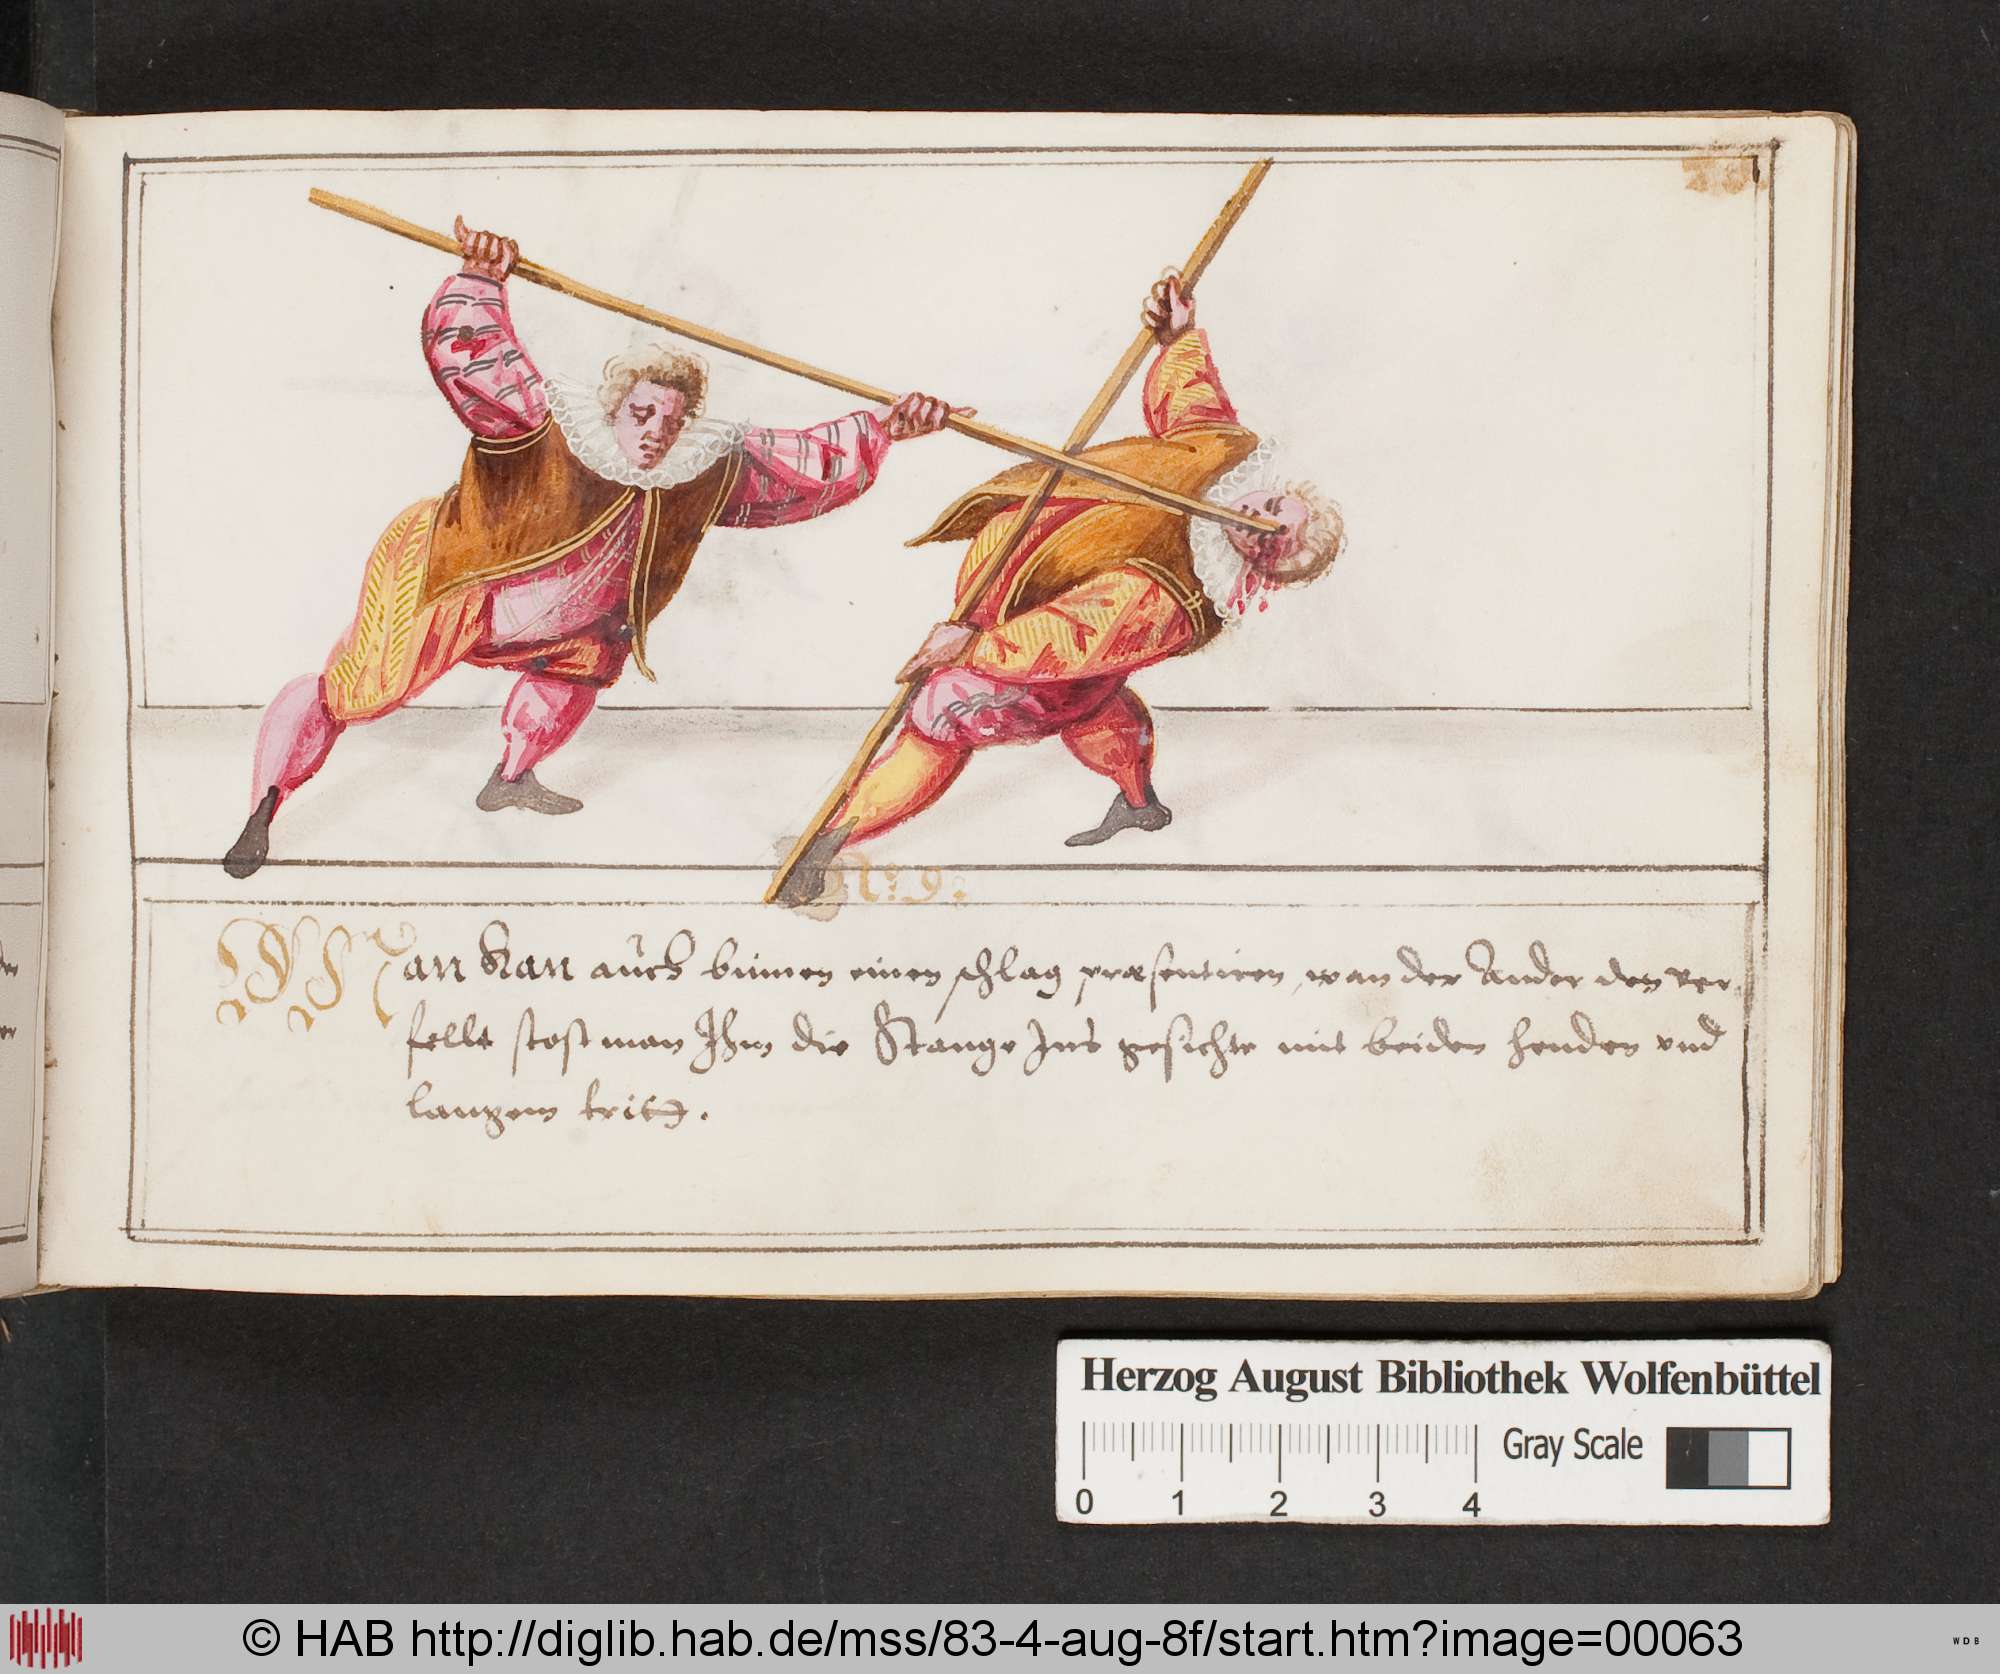 No: 9.
Man kan auch binnen einen schlag præsentiren, wan der Ander den ver
fellt stost man Ihm die Stange Ins gesichte mit beiden henden und
langem tritt.
Herzog August Bibliothek Wolfenbüttel
0 1 2 3 4 Gray Scale
© HAB http://diglib.hab.de/mss/83-4-aug-8f/start.htm?image=00063
WDB